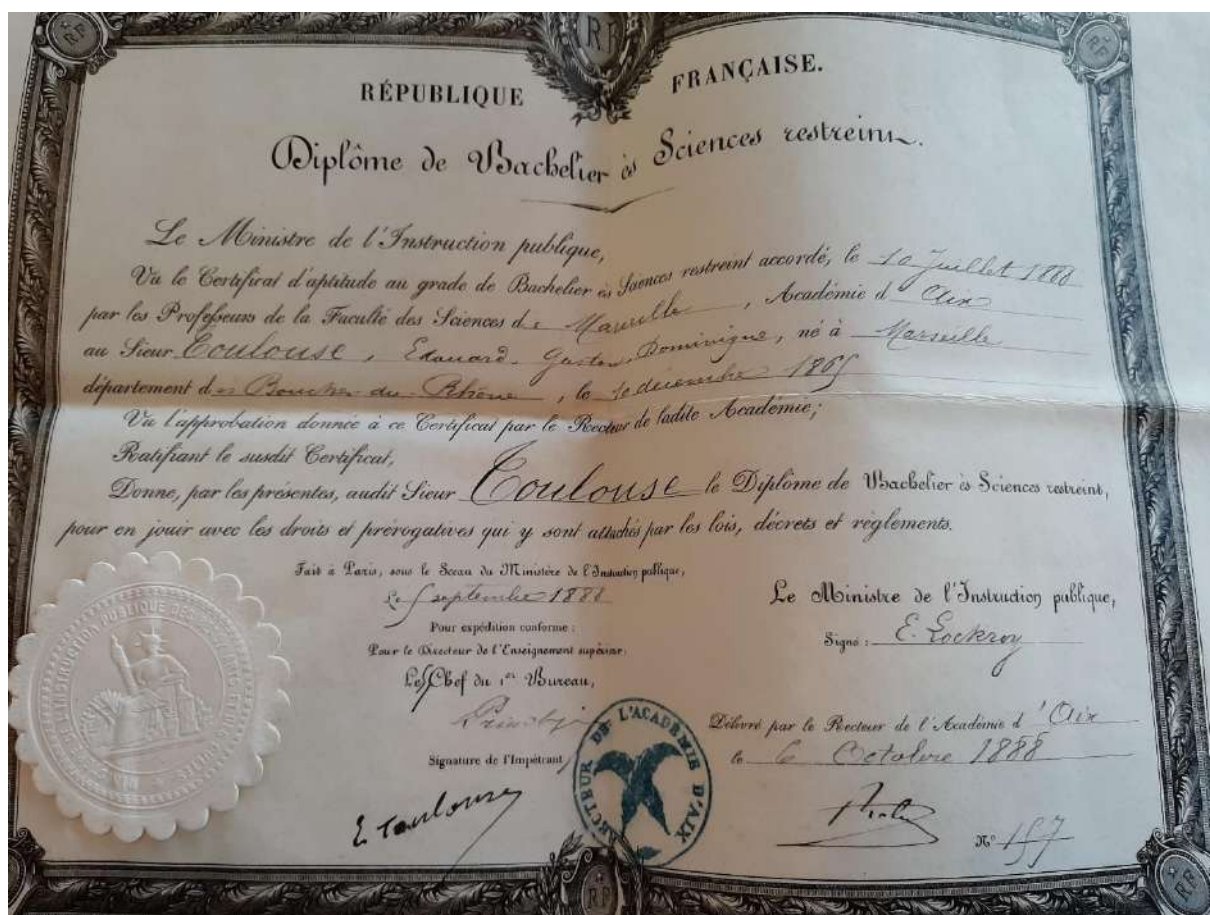 RÉPUBLIQUE FRANÇAISE.
Diplôme de Bachelier ès Sciences restreint.
Le Ministre de l'Instruction publique,
Vu le Certificat d'aptitude au grade de Bachelier ès Sciences restreint accordé, le 10 Juillet 1888
par les Professeurs de la Faculté des Sciences de Marseille, Académie d'Aix
au Sieur Toulouse, Edouard Gaston Dominique, né à Marseille
département des Bouches-du-Rhône, le 10 décembre 1865
Vu l'approbation donnée à ce Certificat par le Recteur de ladite Académie;
Ratifiant le susdit Certificat,
Donne, par les présentes, audit Sieur Toulouse le Diplôme de Bachelier ès Sciences restreint,
pour en jouir avec les droits et prérogatives qui y sont attachés par les lois, décrets et règlements.
Fait à Paris, sous le Sceau du Ministère de l'Instruction publique,
Le 5 septembre 1888
Pour expédition conforme:
Pour le Directeur de l'Enseignement supérieur:
Le Chef du 1er Bureau,
Signature de l'Impétrant,
E Toulouse
Le Ministre de l'Instruction publique,
Signé: E. Lockroy
Délivré par le Recteur de l'Académie d'Aix
le 6 Octobre 1888
N° 157
RECTEUR DE L'ACADÉMIE D'AIX
MIN. INSTRUCTION PUBLIQUE DES BEAUX ARTS
RF
RF
RF
RF
RF